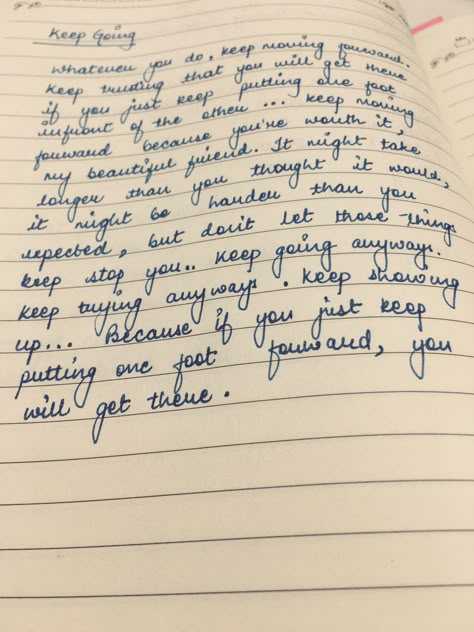 Keep Going
Whatever you do, keep moving forward.
Keep trusting that you will get there
if you just keep putting one foot
infront of the other ... keep moving
forward because you're worth it,
my beautiful friend. It might take
longer than you thought it would,
it might be harder than you
expected, but don't let those things
keep stop you.. Keep going anyways.
Keep trying anyways. Keep showing
up... Because if you just keep
putting one foot forward, you
will get there.